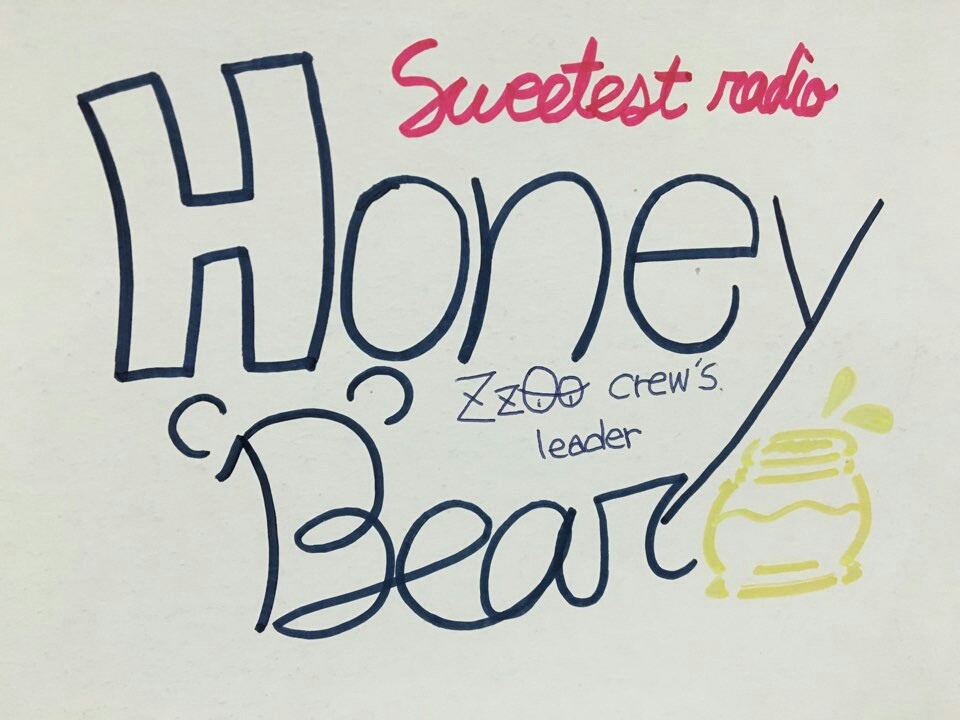 Sweetest radio
Honey
ZzOo crew's.
leader
Bear